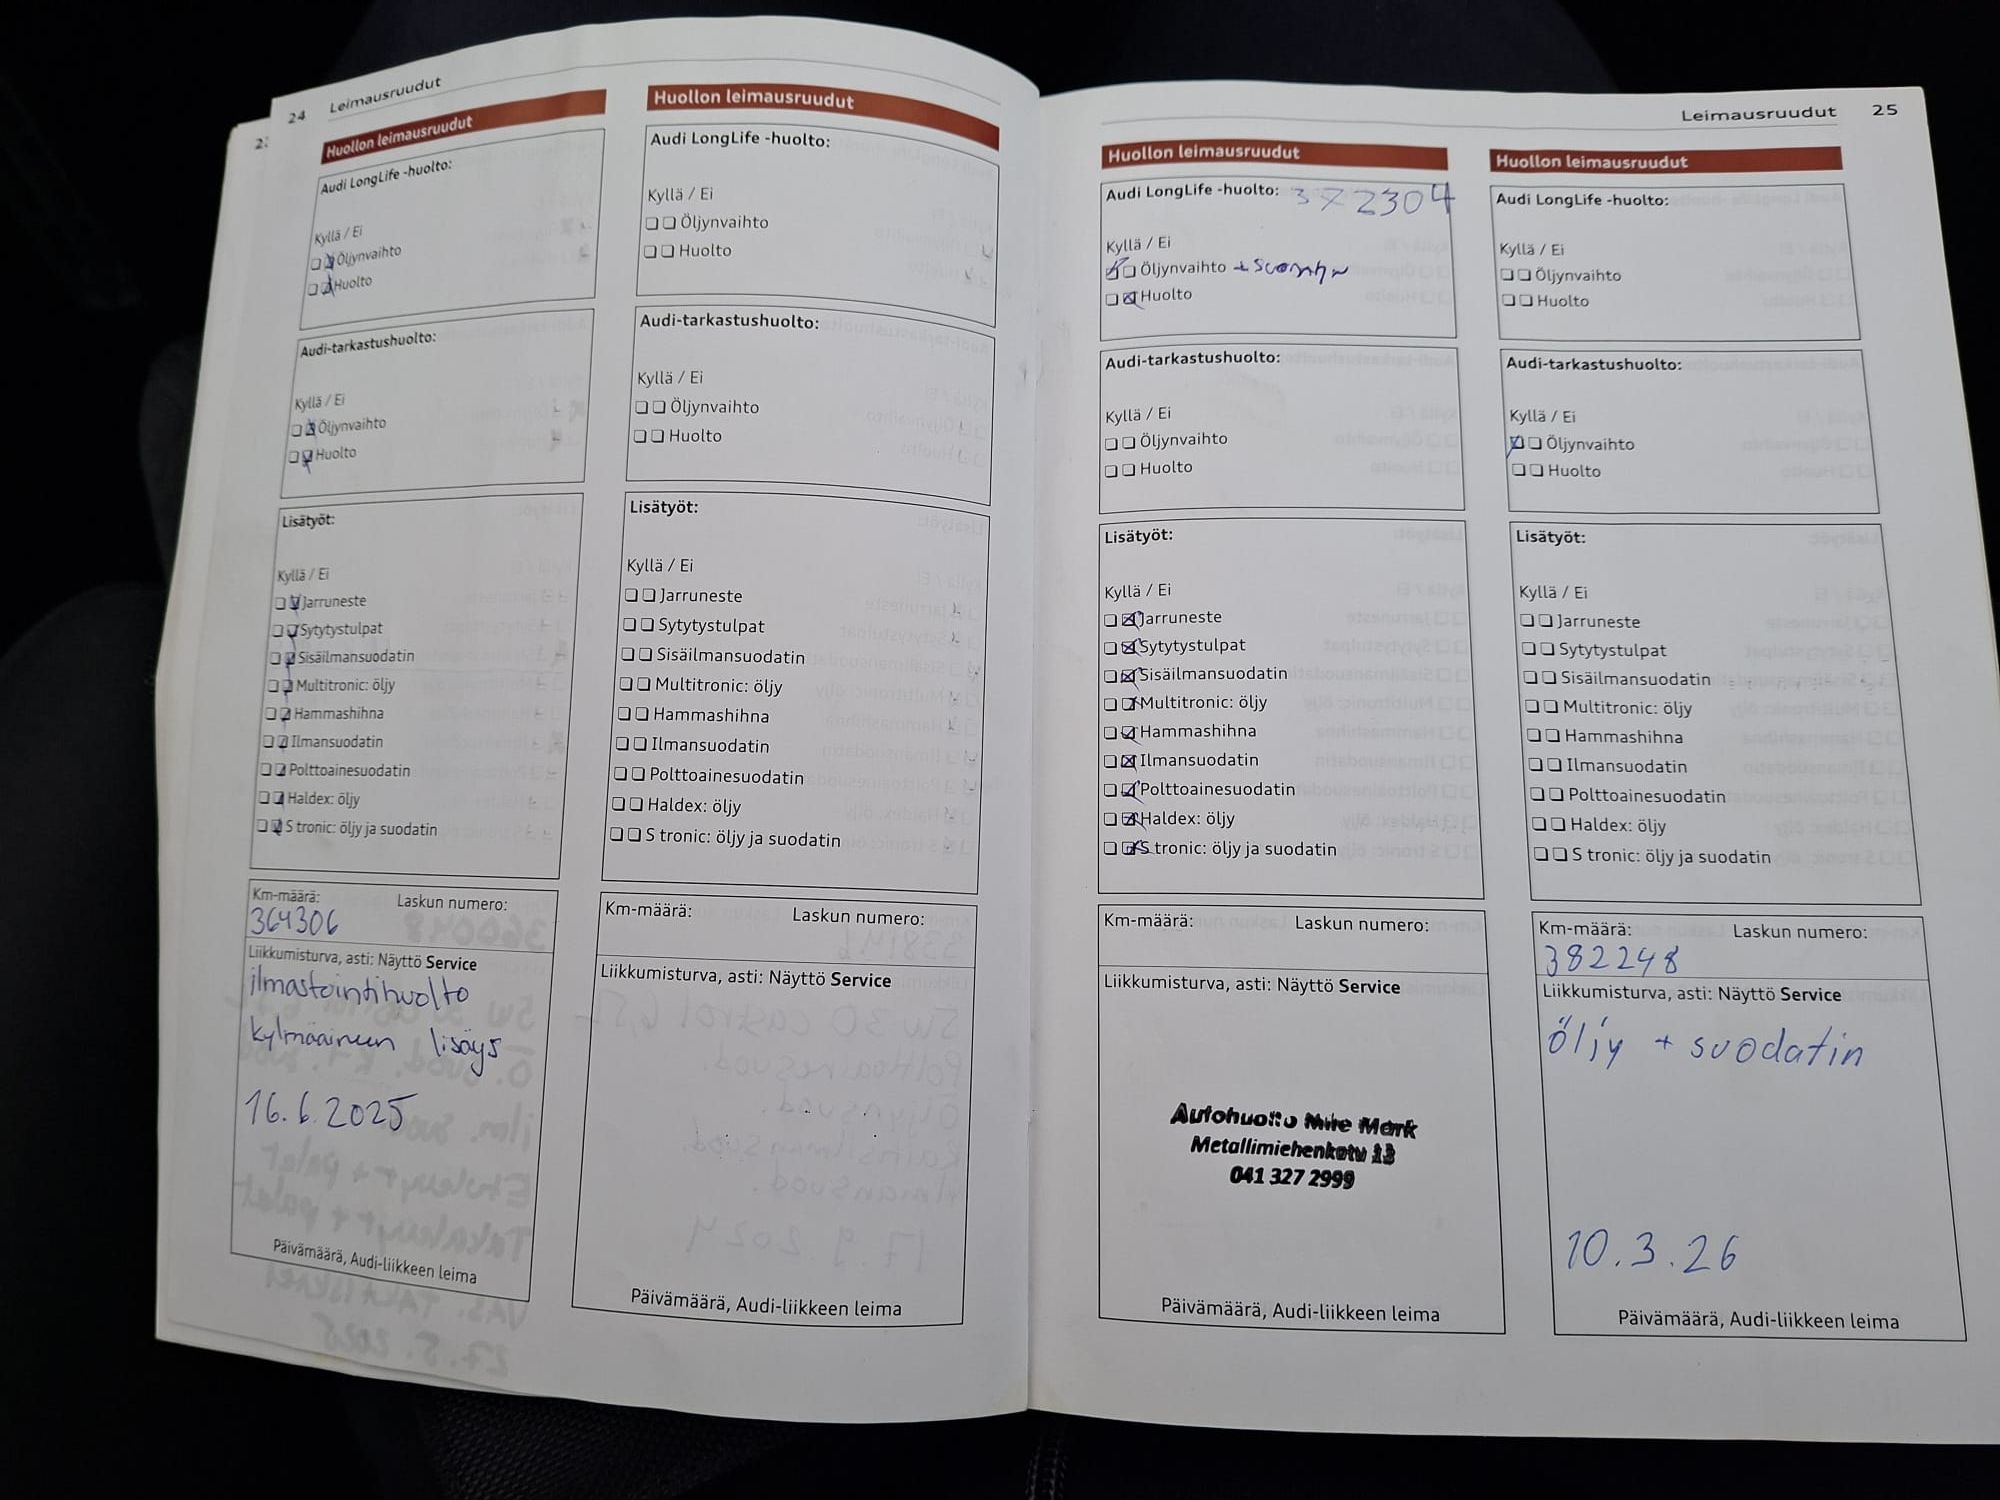 24 Leimausruudut
Huollon leimausruudut
Audi LongLife -huolto:
Kyllä / Ei
Öljynvaihto
Huolto
Audi-tarkastushuolto:
Kyllä / Ei
Öljynvaihto
Huolto
Lisätyöt:
Kyllä / Ei
Jarruneste
Sytytystulpat
Sisäilmansuodatin
Multitronic: öljy
Hammashihna
Ilmansuodatin
Polttoainesuodatin
Haldex: öljy
S tronic: öljy ja suodatin
Km-määrä: Laskun numero:
364306
Liikkumisturva, asti: Näyttö Service
ilmastointihuolto
kylmäaineen lisäys
16.6.2025
Päivämäärä, Audi-liikkeen leima
Huollon leimausruudut
Audi LongLife -huolto:
Kyllä / Ei
Öljynvaihto
Huolto
Audi-tarkastushuolto:
Kyllä / Ei
Öljynvaihto
Huolto
Lisätyöt:
Kyllä / Ei
Jarruneste
Sytytystulpat
Sisäilmansuodatin
Multitronic: öljy
Hammashihna
Ilmansuodatin
Polttoainesuodatin
Haldex: öljy
S tronic: öljy ja suodatin
Km-määrä: Laskun numero:
Liikkumisturva, asti: Näyttö Service
Päivämäärä, Audi-liikkeen leima
Leimausruudut 25
Huollon leimausruudut
Audi LongLife -huolto: 372304
Kyllä / Ei
Öljynvaihto
Huolto
Audi-tarkastushuolto:
Kyllä / Ei
Öljynvaihto
Huolto
Lisätyöt:
Kyllä / Ei
Jarruneste
Sytytystulpat
Sisäilmansuodatin
Multitronic: öljy
Hammashihna
Ilmansuodatin
Polttoainesuodatin
Haldex: öljy
S tronic: öljy ja suodatin
Km-määrä: Laskun numero:
Liikkumisturva, asti: Näyttö Service
Autohuolto Mire Mark
Metallimiehenkatu 13
041 327 2999
Päivämäärä, Audi-liikkeen leima
Huollon leimausruudut
Audi LongLife -huolto:
Kyllä / Ei
Öljynvaihto
Huolto
Audi-tarkastushuolto:
Kyllä / Ei
Öljynvaihto
Huolto
Lisätyöt:
Kyllä / Ei
Jarruneste
Sytytystulpat
Sisäilmansuodatin
Multitronic: öljy
Hammashihna
Ilmansuodatin
Polttoainesuodatin
Haldex: öljy
S tronic: öljy ja suodatin
Km-määrä: Laskun numero:
382248
Liikkumisturva, asti: Näyttö Service
öljy + suodatin
10.3.26
Päivämäärä, Audi-liikkeen leima